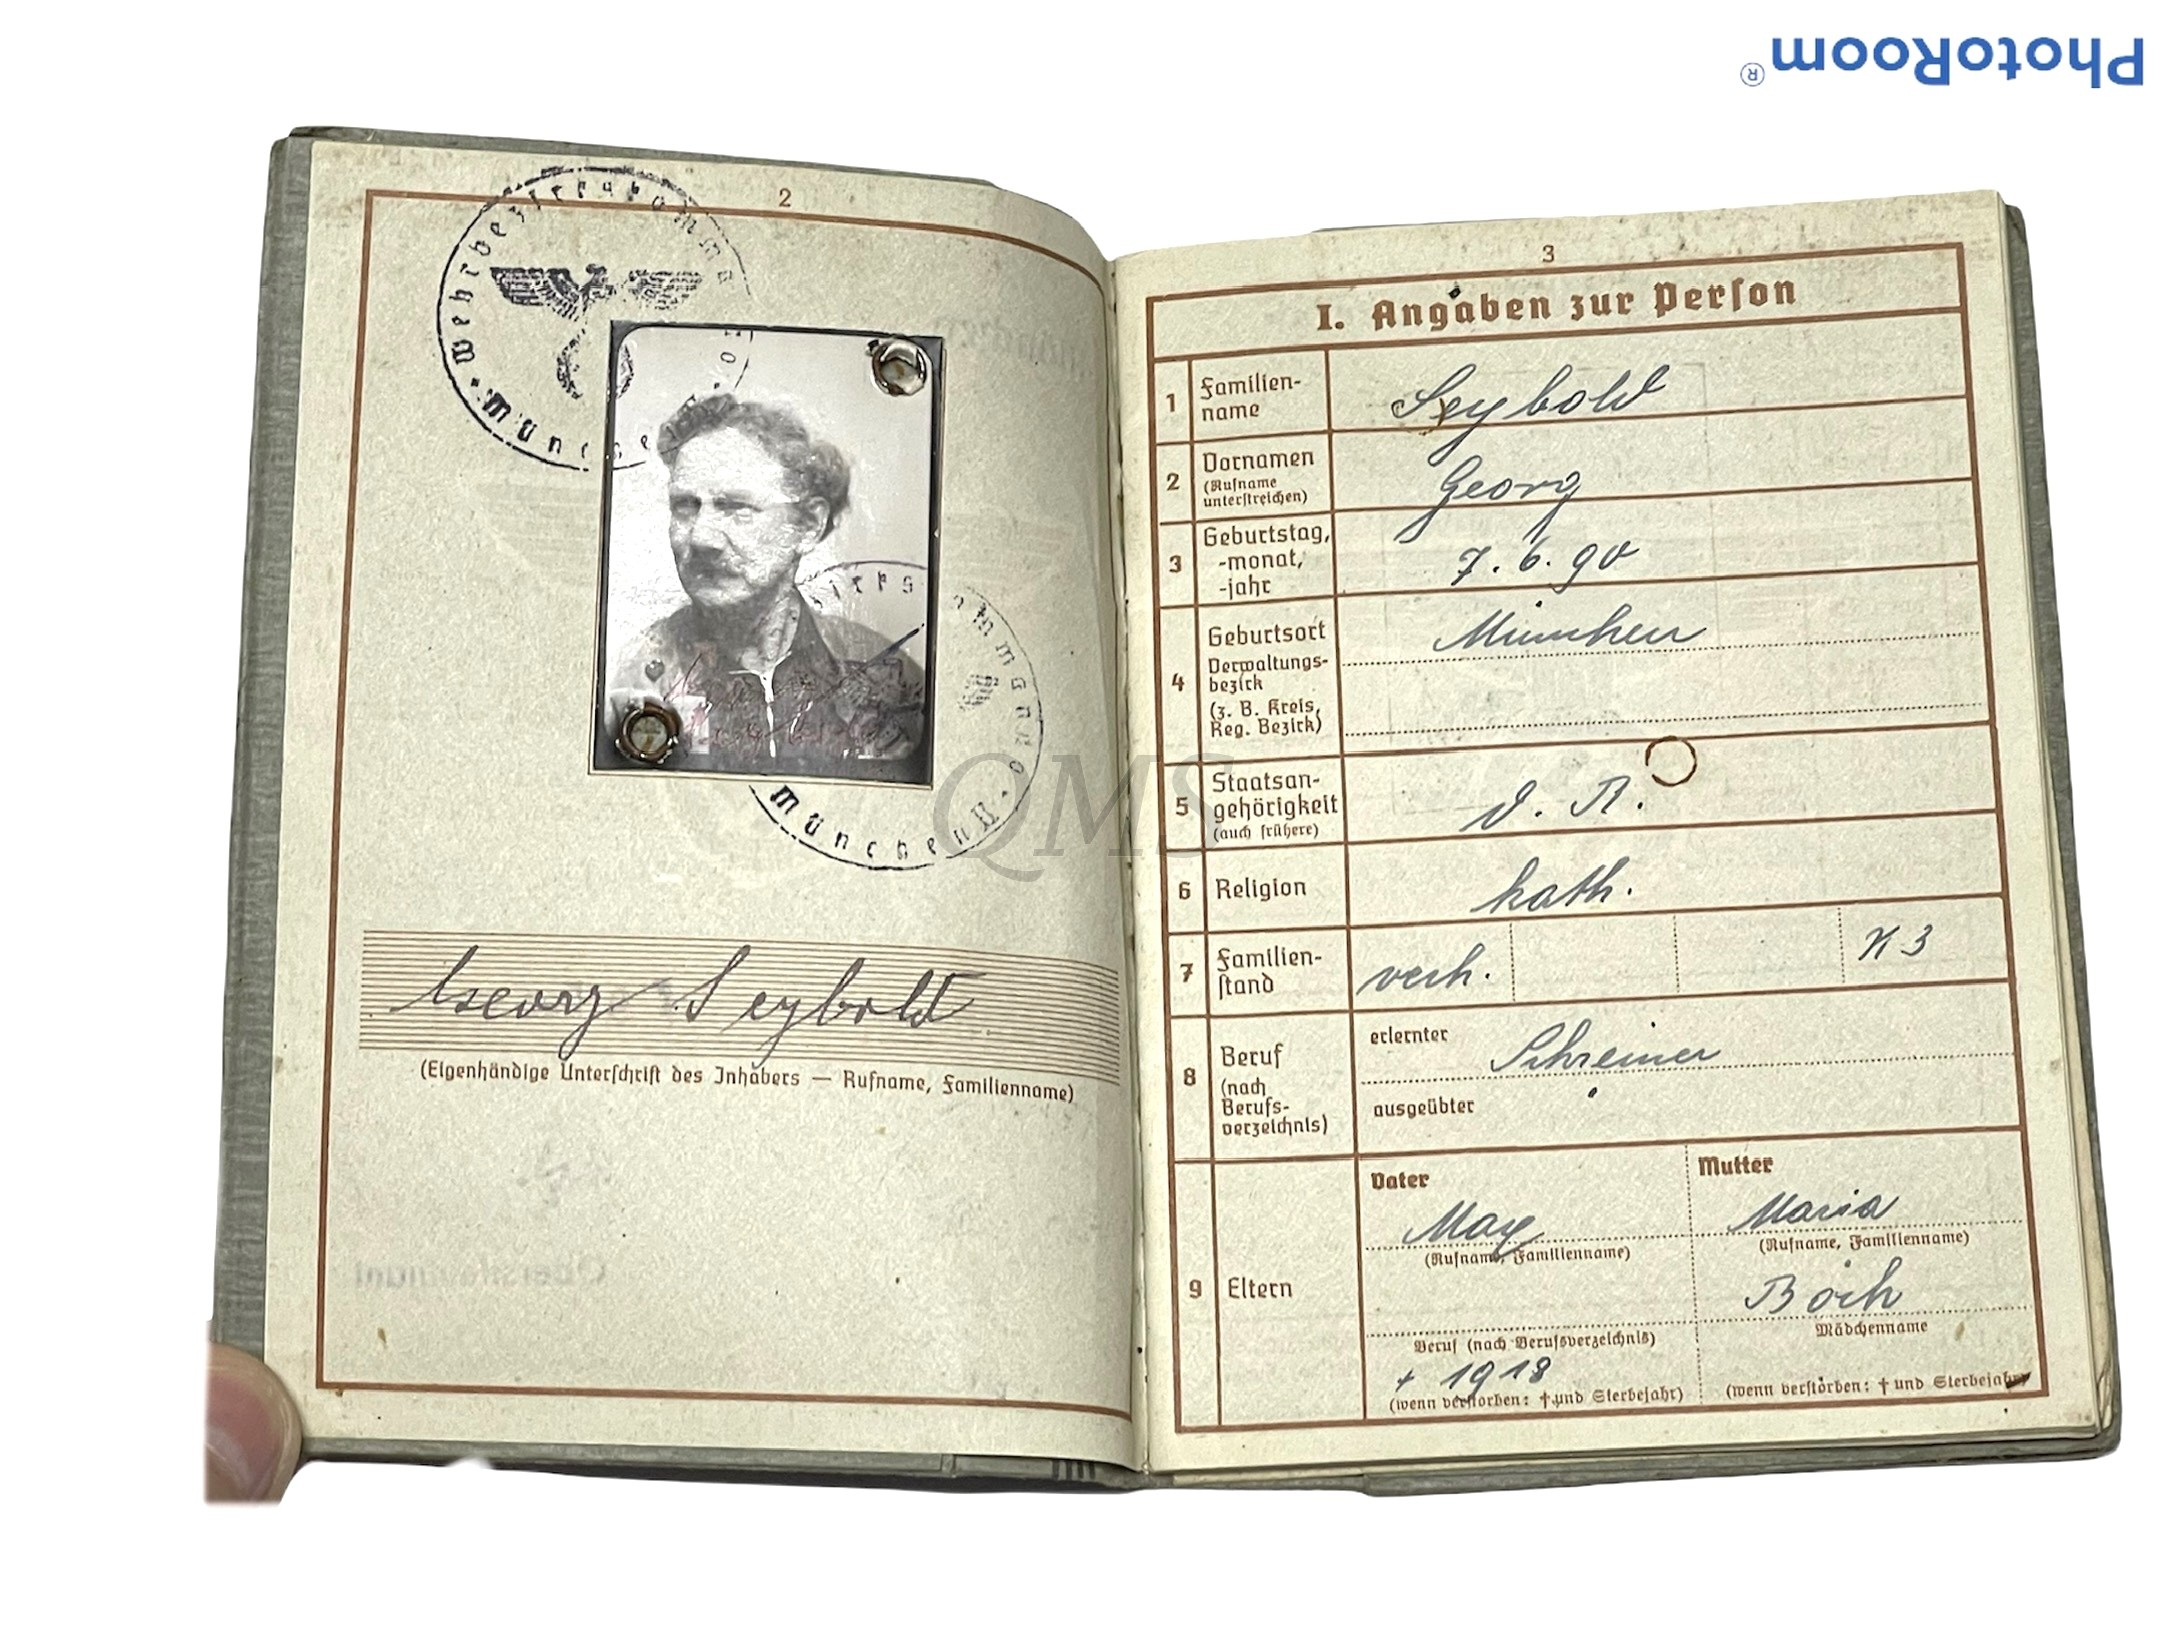 PhotoRoom®
2
Wehrbezirkskommando
München
München II
Georg Seybold
(Eigenhändige Unterschrift des Inhabers — Rufname, Familienname)
QMS
3
I. Angaben zur Person
1 Familien-
name
Seybold
2 Vornamen
(Rufname
unterstreichen)
Georg
3 Geburtstag,
-monat,
-jahr
7.6.90
4 Geburtsort
Verwaltungs-
bezirk
(z. B. Kreis,
Reg. Bezirk)
München
5 Staatsan-
gehörigkeit
(auch frühere)
D. R.
6 Religion
kath.
7 Familien-
stand
verh.
K 3
8 Beruf
(nach
Berufs-
verzeichnis)
erlernter
Schreiner
ausgeübter
9 Eltern
Vater
Max
(Rufname, Familienname)
Beruf (nach Berufsverzeichnis)
+ 1918
(wenn verstorben: † und Sterbejahr)
Mutter
Maria
(Rufname, Familienname)
Mädchenname
(wenn verstorben: † und Sterbejahr)